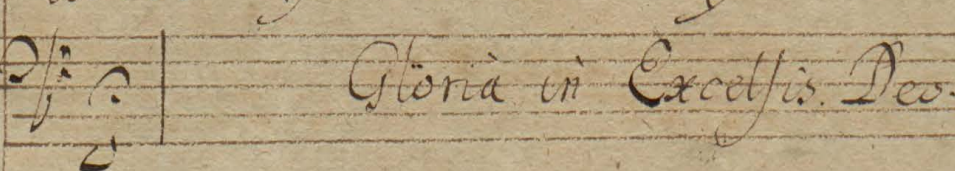 Gloria in Excelsis. Deo.